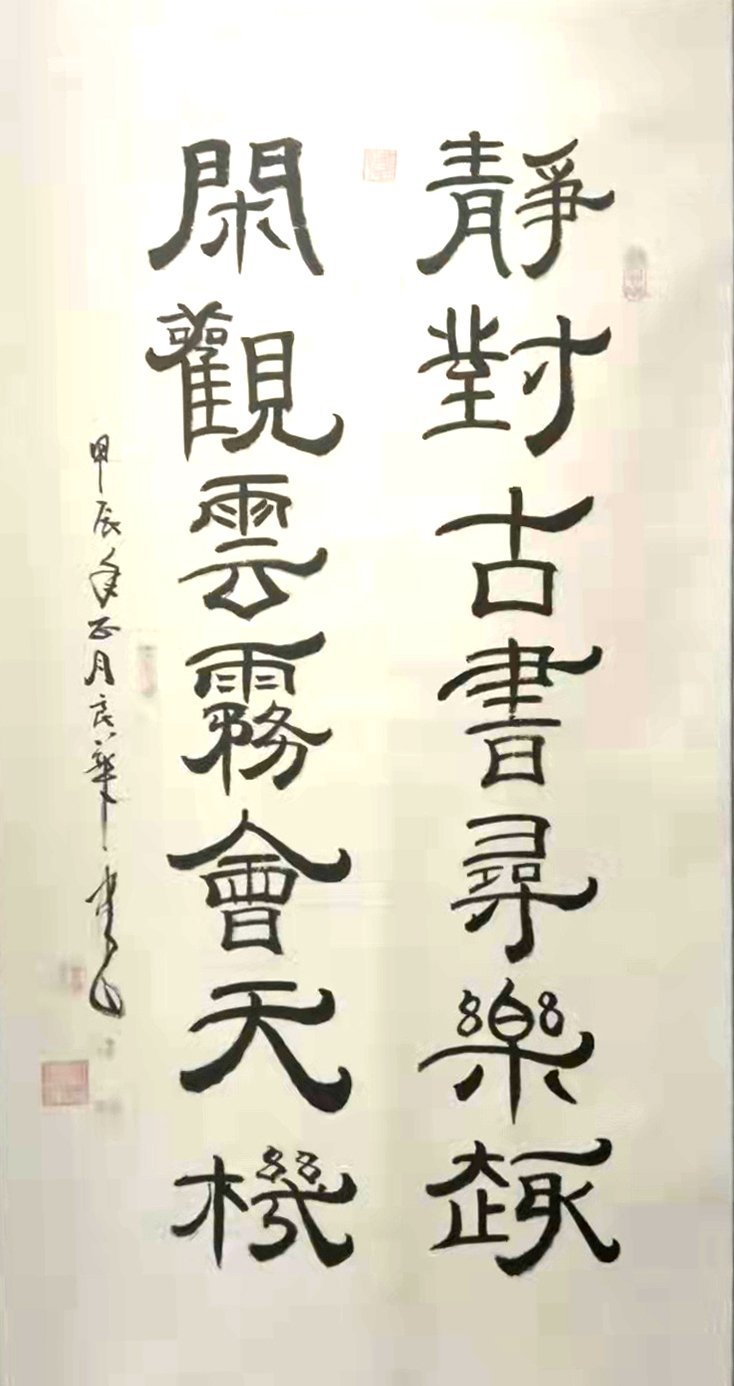 靜對古書尋樂趣
閑觀雲霧會天機
甲辰年正月良華書